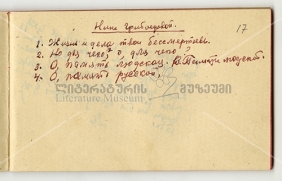 Нине Грибоедовой.
17
1. Жизнь и дела твои бессмертны
2. Но для чего?
3. О, память людская.
4. О, память русская,
ლიტერატურის მუზეუმი
Literature Museum